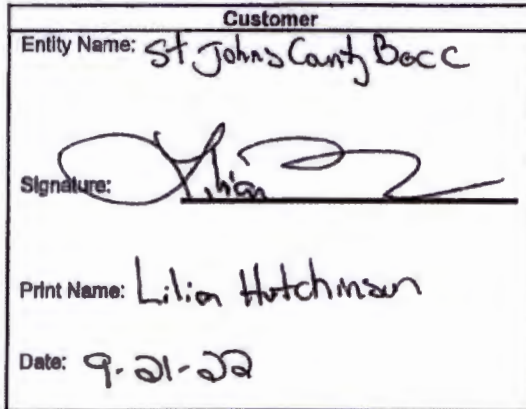 Customer
Entity Name: St Johns County Bocc
Signature: Lilian
Print Name: Lilian Hutchinson
Date: 9-21-22